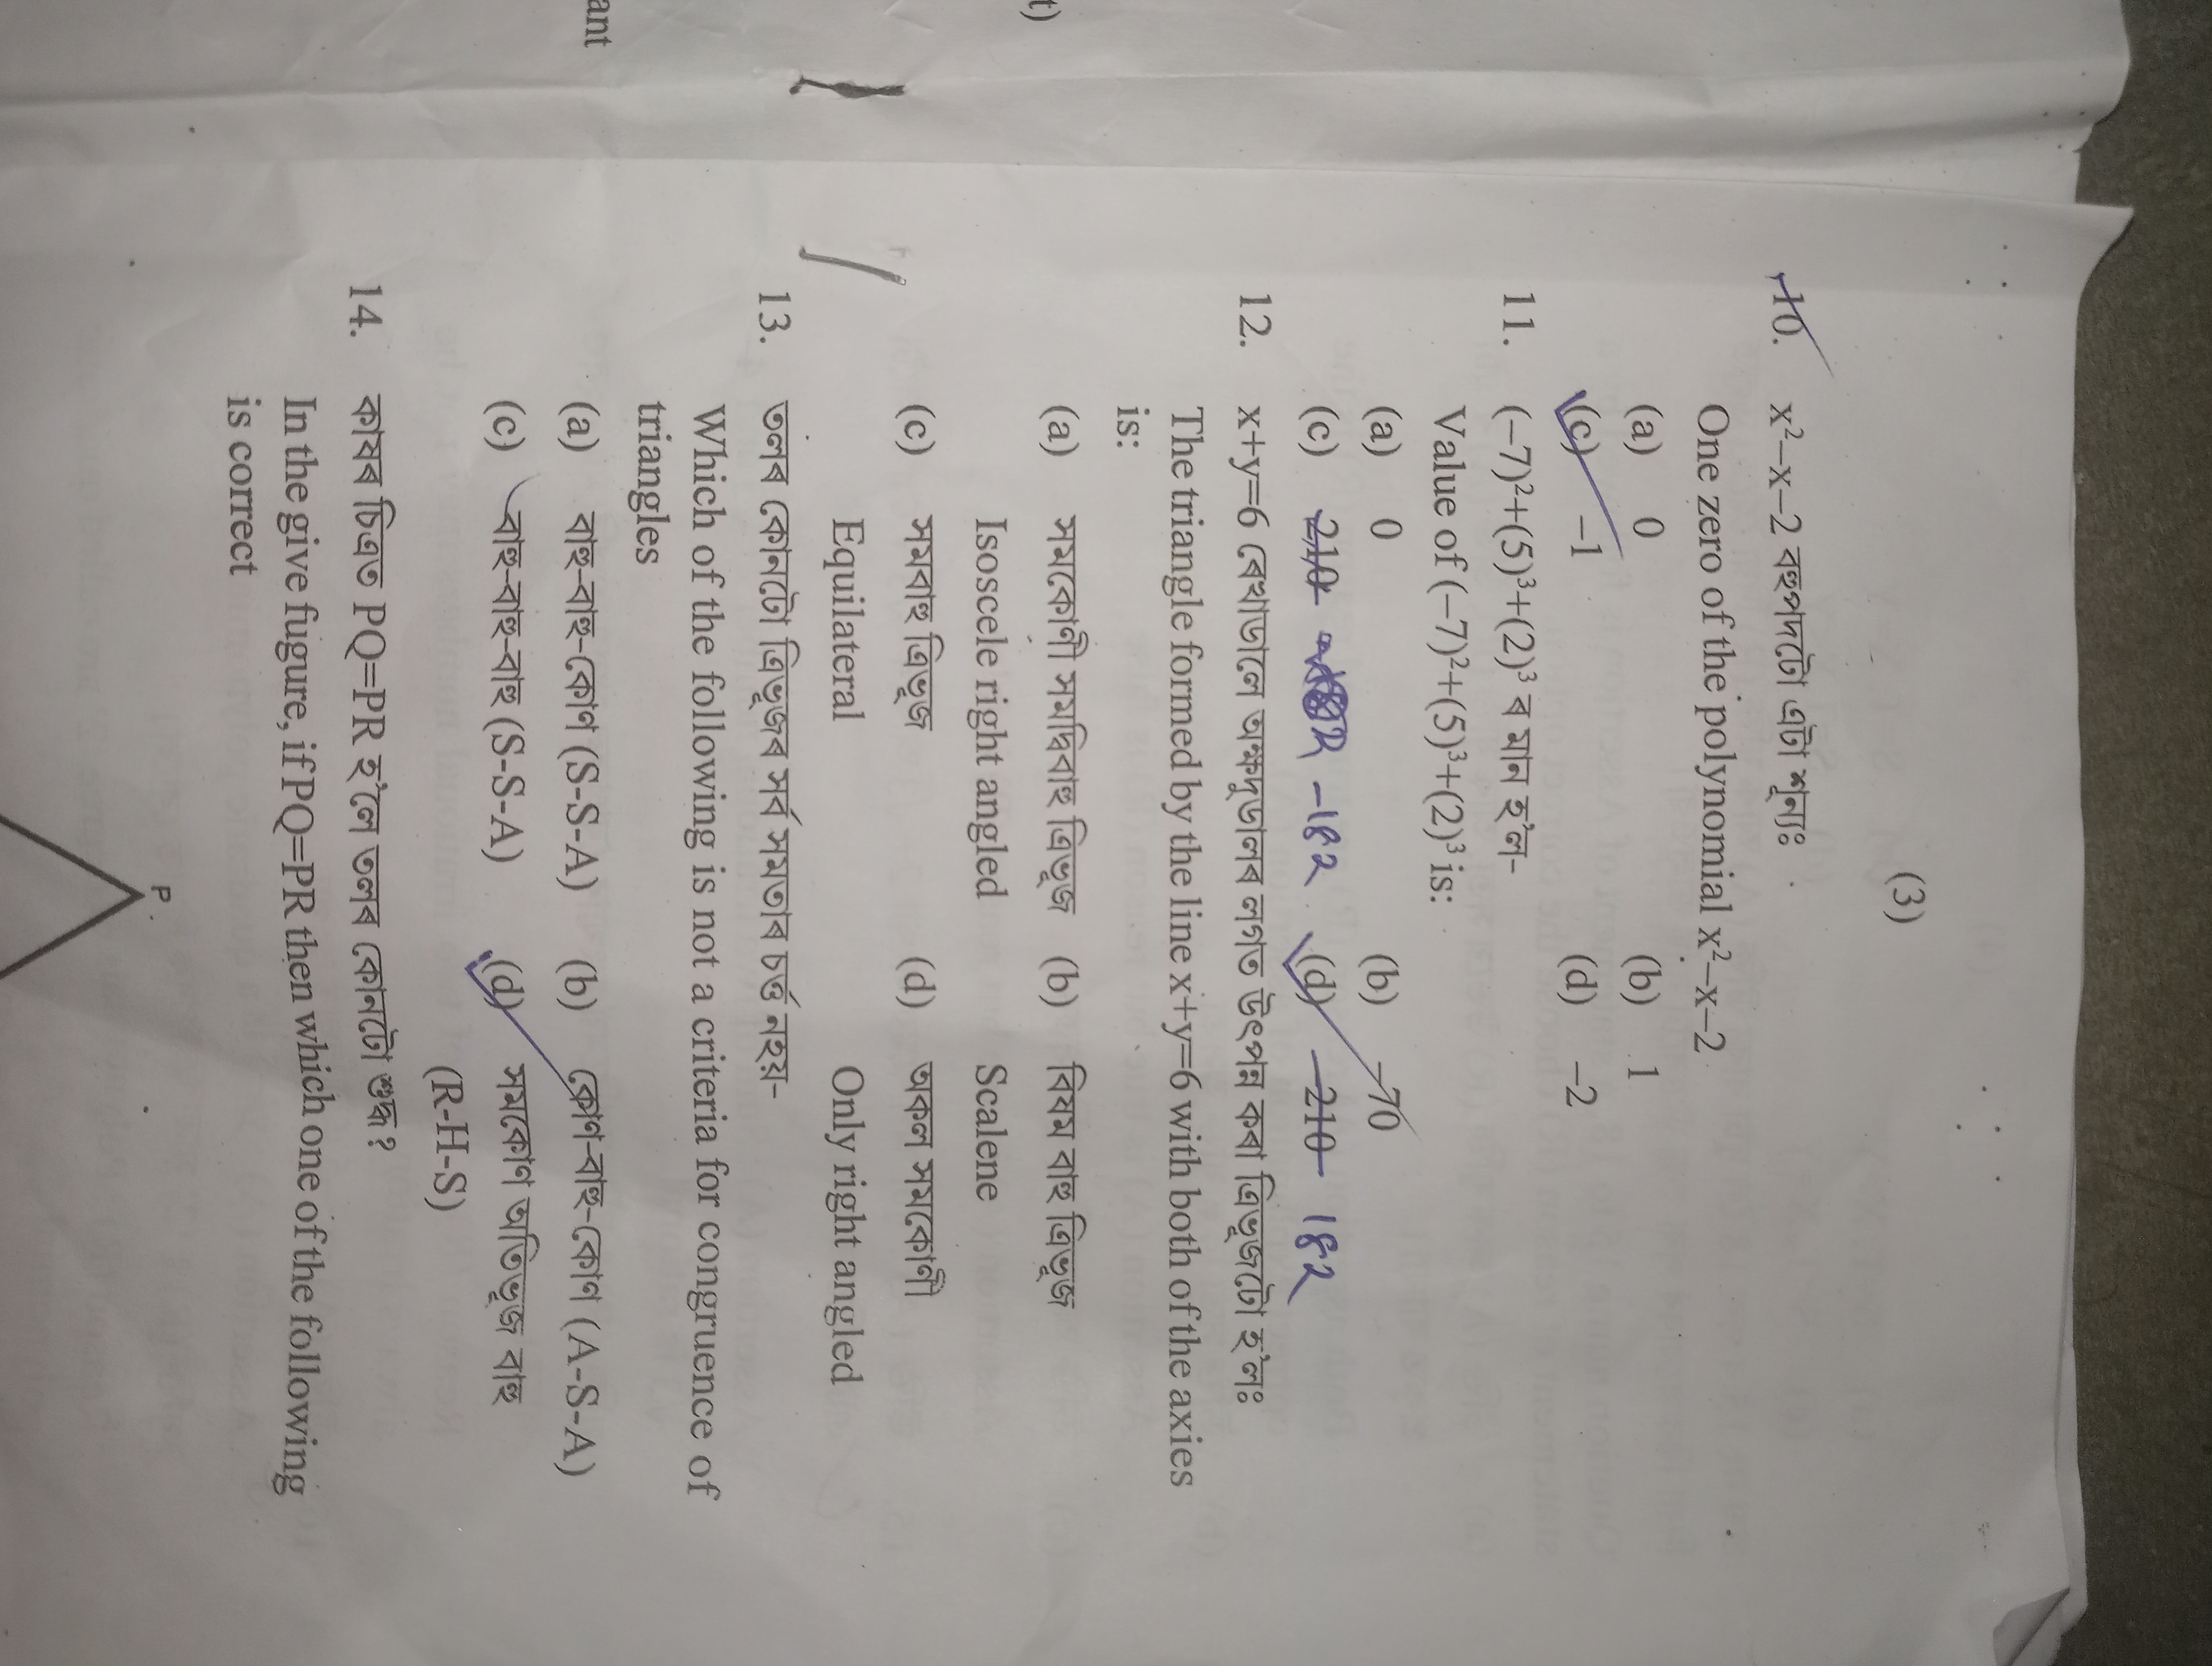 ant
t)
(3)
10. x²–x–2 বহুপদটো এটা শূন্যঃ
One zero of the polynomial x²–x–2
(a) 0 (b) 1
(c) –1 (d) –2
11. (–7)²+(5)³+(2)³ ৰ মান হ'ল-
Value of (–7)²+(5)³+(2)³ is:
(a) 0 (b) –70
(c) 210 –182 (d) –210 182
12. x+y=6 ৰেখাডালে অক্ষদুডালৰ লগত উৎপন্ন কৰা ত্ৰিভূজটো হ'লঃ
The triangle formed by the line x+y=6 with both of the axies
is:
(a) সমকোণী সমদ্বিবাহু ত্ৰিভূজ (b) বিষম বাহু ত্ৰিভূজ
Isoscele right angled Scalene
(c) সমবাহু ত্ৰিভূজ (d) অকল সমকোণী
Equilateral Only right angled
13. তলৰ কোনটো ত্ৰিভূজৰ সৰ্ব সমতাৰ চৰ্ত্ত নহয়-
Which of the following is not a criteria for congruence of
triangles
(a) বাহু-বাহু-কোণ (S-S-A) (b) কোণ-বাহু-কোণ (A-S-A)
(c) বাহু-বাহু-বাহু (S-S-A) (d) সমকোণ অতিভূজ বাহু
(R-H-S)
14. কাষৰ চিত্ৰত PQ=PR হ'লে তলৰ কোনটো শুদ্ধ?
In the give fugure, if PQ=PR then which one of the following
is correct
P